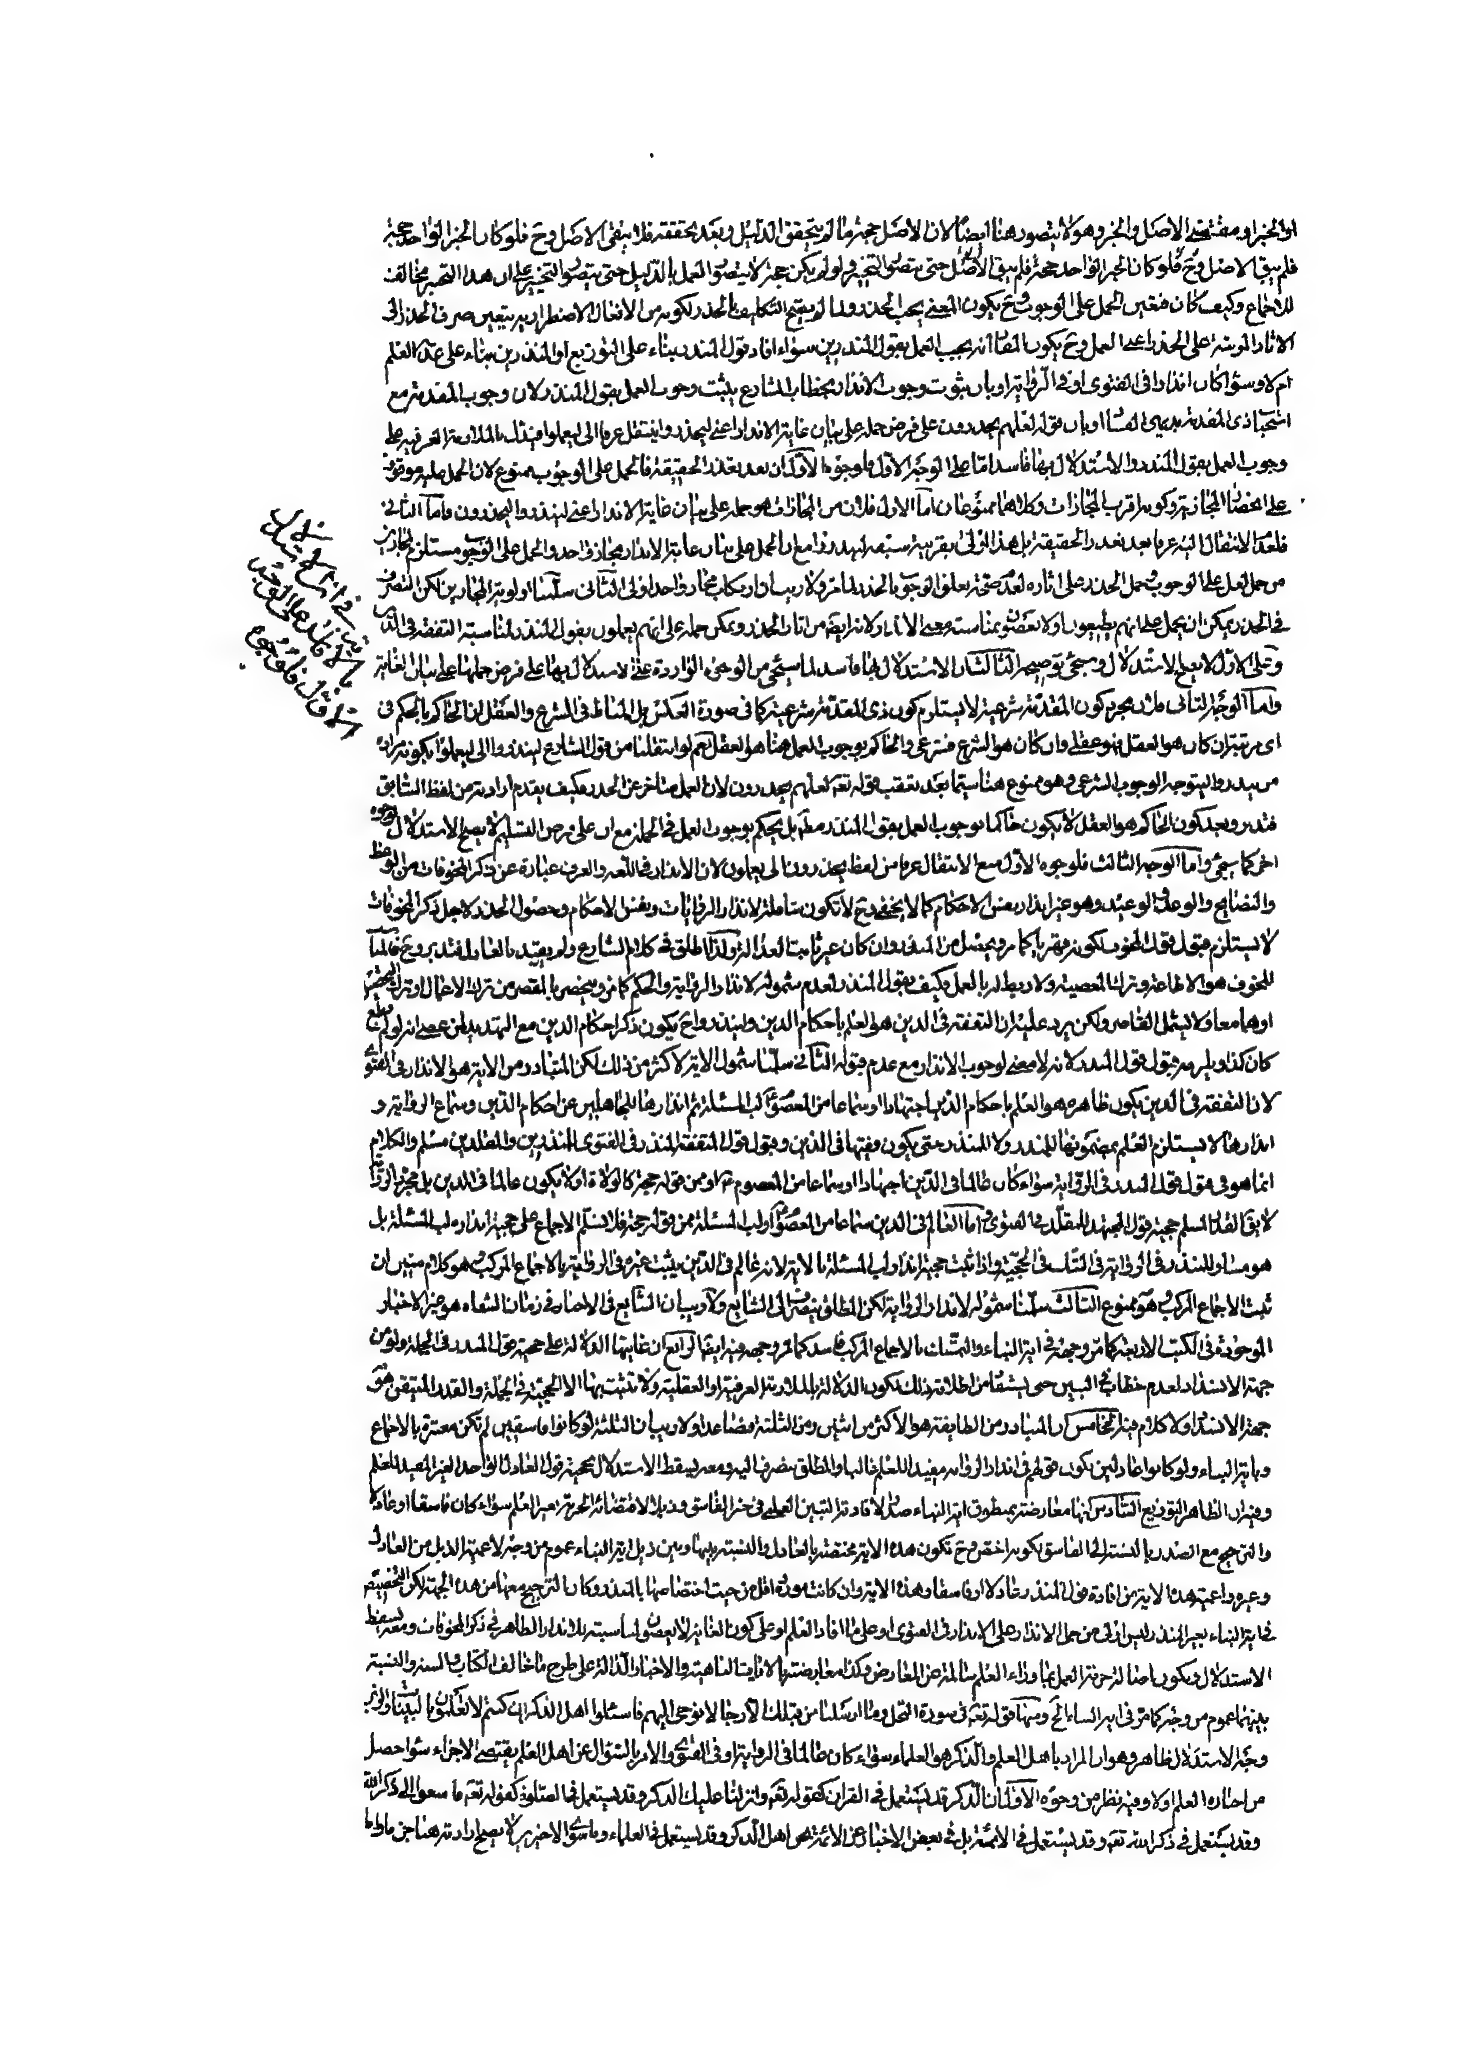 او الخبر او مقتضى الاصل والخبر وهو لا يتصور هنا ايضا لان الاصل حجة ما لم يتحقق الدليل وبعد تحققه فلا يبقى الاصل وح فلو كان الخبر الواحد حجة
فلم يبق الاصل وح فلو كان الخبر الواحد حجة فلم يبق الاصل حتى يتصور التخيير ولو لم يكن حجة لا يتصور العمل بالدليل حتى يتصور التخيير على ان هذا التخيير مخالف
للاجماع وكيف كان فتعين الحمل على الوجوب وح يكون المعنى يجب الحذر ولما لم يصح التكليف بالحذر لكونه من الافعال الاضطرارية يتعين صرف الحذر الى
الاثار المرتبة على الحذر اعنى العمل وح يكون المفاد انه يجب العمل بقول المنذرين سواء افاد قول المنذر بناء على التوزيع او المنذرين بناء على عدمه العلم
ام لا وسواء كان انذارا فى الفتوى او فى الرواية او بان ثبوت وجوب الانذار بخطاب الشارع يثبت وجوب العمل بقول المنذر لان وجوب المقدمة مع
استحباب ذى المقدمة بديهى الفساد او بان قوله لعلهم يحذرون على فرض حمله على بيان غاية الانذار اعنى ليحذروا ينتقل عرفا الى ليعملوا فيدل بالملازمة العرفية على
وجوب العمل بقول المنذر والاستدلال بها فاسد اما على الوجه الاول فلوجوه الاول ان بعد تعذر الحقيقة فالحمل على الوجوب ممنوع لان الحمل عليه موقوف
على انحصار المجاز فيه وكونه اقرب المجازات وكلاهما ممنوعان اما الاول فلان من المجازات هو حمله على بيان غاية الانذار اعنى لينذروا ليحذرون واما الثانى
فلعدم الانتقال اليه عرفا بعد تعذر الحقيقة بل هذا اولى بقرينة سبقه لينذروا مع ان الحمل على بيان غاية الانذار مجاز واحد والحمل على الوجوب مستلزم لمجازين
من حمل لعل على الوجوب وحمل الحذر على اثاره لعدم صحة تعلق الوجوب بالحذر لما مر ولا ريب ان ارتكاب مجاز واحد اولى الثانى سلمنا اولوية المجازين لكن التصرف
فى الحذر يمكن ان يحمل على انهم يطيعون او لا يعصون بمناسبة معنى الانذار ولانه ايضا من اثار الحذر ويمكن حمله على انهم يعملون بقول المنذر لمناسبة التفقه فى الدين
وعلى الاول لا يصح الاستدلال وسيجئ توضيحه الثالث ان الاستدلال بها فاسد لما سيجئ من الوجوه الواردة على الاستدلال بها على فرض حملها على بيان الغاية
واما الوجه الثانى فلان مجرد كون المقدمة شرعية لا يستلزم كون ذى المقدمة شرعية كما فى صورة العكس بل المناط فى الشرع والعقل ان الحاكم بالحكم فى
اى مرتبة ان كان هو العقل فهو عقلى وان كان هو الشرع فشرعى والحاكم بوجوب العمل هنا هو العقل نعم لو انتقلنا من قول الشارع لينذروا الى ليعملوا بكونه مراده
من لينذروا ليتوجه الوجوب الشرعى وهو ممنوع هنا سيما بعد تعقب قوله تعه لعلهم يحذرون لان العمل متاخر عن الحذر فكيف يتقدم ارادته من لفظ السابق
فتدبر وبعد كون الحاكم هو العقل لا يكون حاكما بوجوب العمل بقول المنذر مطلقا بل يحكم بوجوب العمل فى الجملة مع ان على فرض التسليم لا يصح الاستدلال لوجوه
اخر كما سيجئ واما الوجه الثالث فلوجوه الاول منع الانتقال عرفا من لفظ يحذرون الى يعملون لان الانذار فى اللغة والعرف عبارة عن ذكر المخوفات من الوعظ
والنصايح والوعد والوعيد وهو غير انذار بعض الاحكام كما لا يخفى وح لا تكون شاملة لانذار الروايات ونفس الاحكام وحصول الحذر لاجل ذكر المخوفات
لا يستلزم قبول قول المخوف لكونه قهريا كما مر ويحصل من المنذر وان كان غير ثابت العدالة ولذا اطلق فى كلام الشارع ولم يقيد بالعادل فتدبر وح فالمآ
للمخوف هو الاطاعة وترك المعصية ولا ربط له بالعمل وكيف بقول المنذر لعدم شموله لانذار الرواية والحكم كما مر ويختص بالمقصر من ترك الاعمال او ترك المحصل
او هما معا ولا يشمل القاصر ولكن يرد عليه ان التفقه فى الدين هو العلم باحكام الدين ولينذروا ح يكون ذكر احكام الدين مع التهديد لمن عصى انه لو لم يطع
كان كذا ويلزمه قبول قول المنذر لانه لا معنى لوجوب الانذار مع عدم قبوله الثانى سلمنا شمول الاية لاكثر من ذلك لكن المتبادر من الاية هو الانذار فى الفتوى
لان التفقه فى الدين يكون ظاهره هو العلم باحكام الدين اجتهادا او سماعا من المعصوم لب المسئلة ثم انذارها للجاهلين عن احكام الدين وسماع الرواية و
انذارها لا يستلزم العلم بمضمونها للمنذر ولا المنذر حتى يكون فقيها فى الدين وقبول قول المتفقه المنذر فى الفتوى للمنذرين والمقلدين مسلم والكلام
انما هو فى قبول قول المنذر فى الرواية سواء كان عالما فى الدين اجتهادا او سماعا من المعصوم ع او من قوله حجة كالولاة او لا يكون عالما فى الدين بل مخبر الرواية
لا يق القدر المسلم حجية قول المجتهد للمقلد فى الفتوى واما العالم فى الدين سماعا من المعصوم او لب المسئلة ممن قوله حجة فلا نسلم الاجماع على حجية انذاره لب المسئلة بل
هو مساو للمنذر فى الرواية فى الشك فى الحجية واذا ثبت حجية انذار لب المسئلة بالاية لانه عالم فى الدين يثبت غيره فى الرواية بالاجماع المركب وهو كلام متين ان
ثبت الاجماع المركب وهو ممنوع الثالث سلمنا شموله لانذار الرواية لكن المطلق ينصرف الى الشايع ولا ريب ان الشايع فى الاخبار فى زمان الشفاه هو غير الاخبار
الموجودة فى الكتب الاربعة كما مر وجهه فى اية النباء والتمسك بالاجماع المركب فاسد كما مر وجهه فيه ايضا الرابع ان غايتها الدلالة على حجية قول المنذر فى الجملة ولو من
جهة الانسداد لعدم خطاب فى البين حتى يستفاد من اطلاقه ذلك لكون الدلالة بالملازمة العرفية او العقلية ولا تثبت بها الا الحجية فى الجملة والقدر المتيقن هو
جهة الانسداد ولا كلام فيه الخامس ان المتبادر من الطايفة هو الاكثر من اثنين ومن الثلثة فصاعدا ولا ريب ان الثلثة لو كانوا فاسقين لم تكن معتبرة بالاجماع
وباية النباء ولو كانوا عادلين يكون قولهم فى انذار الرواية مفيدا للعلم غالبا والمطلق ينصرف اليه ومعه يسقط الاستدلال بحجية قول العادل الواحد الغير المفيد للعلم
وفيه ان الظاهر التوزيع السادس انها معارضة بمنطوق اية النباء صدرا لافادته التبين العلمى فى خبر الفاسق وذيلا لاقتضائه الحرمة بغير العلم سواء كان فاسقا او عادلا
والترجيح مع الصدر بالنسبة الى الفاسق لكونه اخص وح تكون هذه الاية مختصة بالعادل والنسبة بينها وبين ذيل اية النباء عموم من وجه لاعمية الذيل من العادل
وغيره واعمية هذه الاية من افادة قول المنذر عادلا او فاسقا وهذه الاية وان كانت مورده اقل من حيث اختصاصها بالمنذر وكان الترجيح معها من هذه الجهة لكن التخصيص
فى اية النباء بغير المنذر ليس اولى من حمل الانذار على الانذار فى الفتوى او على ما افاد العلم او على كون الغاية لا يعصون لمناسبته بالانذار الظاهر فى ذكر المخوفات ومعه يسقط
الاستدلال ويكون اصالة حرمة العمل بما وراء العلم سالمة عن المعارض وكذا معارضتها بالايات الناهية والاخبار الدالة على طرح ما خالف الكتاب والسنة والنسبة
بينهما عموم من وجه كما مر فى اية النباء الخ ومنها قوله تعه فى سورة النحل وما ارسلنا من قبلك الا رجالا نوحى اليهم فاسئلوا اهل الذكر ان كنتم لا تعلمون بالبينات والزبر
وجه الاستدلال ظاهر وهو ان المراد باهل العلم والذكر هو العلماء سواء كان عالما فى الرواية او فى الفتوى والامر بالسؤال عن اهل العلم يقتضى الاجزاء سواء حصل
من اخباره العلم او لا وفيه نظر من وجوه الاول ان الذكر قد يستعمل فى القرآن كقوله تعه وانزلنا عليك الذكر وقد يستعمل فى الصلوة كقوله تعه فاسعوا الى ذكر الله
وقد يستعمل فى ذكر الله تعه وقد يستعمل فى الائمة بل فى بعض الاخبار عن الائمة نحن اهل الذكر وقد يستعمل فى العلماء وما سوى الاخيرين لا يصح ارادته هنا